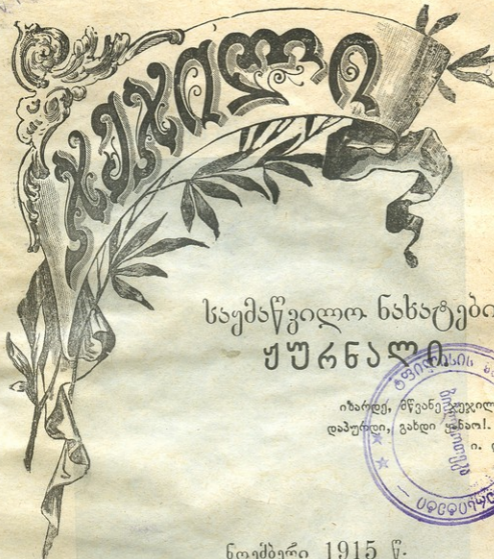 ჯეჯილი
საყმაწვილო ნახატები
ჟურნალი
იზარდე, მწვანე ჯეჯილო
დაპურდი, გახდი ყანაო!.
ი.
ნოემბერი 1915 წ.
ბიბლიოთეკა